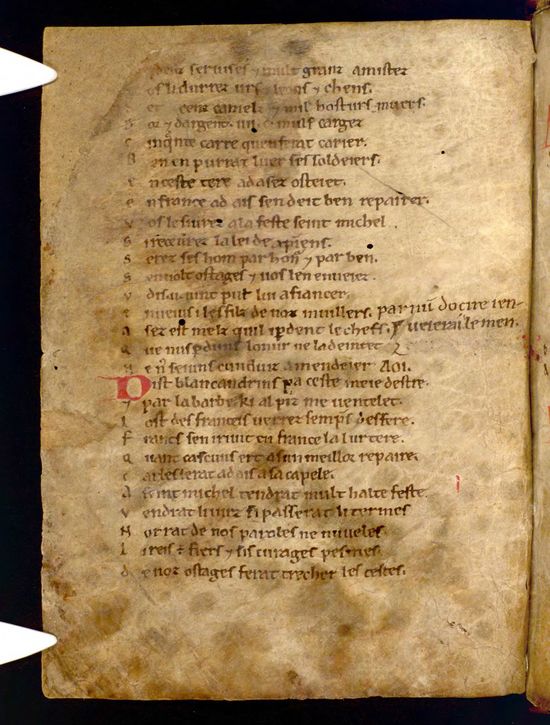 deilz seruises ⁊ mult granz amistez
os li durrez urs ⁊ leons ⁊ chens.
S et cenz camelz ⁊ mil hosturs muers.
D or ⁊ dargent .iiii. c muls cargez
C inquante carre quen ferat carier.
B en en purrat luer ses soldeiers.
E n ceste tere ad asez osteiet.
E n france ad ais sen deit ben repairer.
V os le siurez a la feste seint michel.
S i receurez la lei de xpiens.
S erez ses hom par honur ⁊ par ben.
S en uolt ostages ⁊ uos len enueiez.
V dis .u. uint pur lui afiancer.
E nueiuns i les filz de noz muillers. par num docire i en-
A sez est melz quil i perdent le chefs. ueierai le men.
Q ue nus perduns lonur ne la deintet
N e nus seiuns cunduiz a mendeier. Aoi.
Dist blancandrins pa ceste meie destre.
⁊ par la barbe ki al piz me uentelet.
L ost des franceis uerrez sempres desfere.
F rancs sen irunt en france la lur tere.
Q uant cascuns ert a sun meillor repaire.
C arles serat ad ais a sa capele.
A seint michel tendrat mult halte feste.
V endrat li iurz si passerat li termes
N orrat de nos paroles ne nuueles.
L i reis est fiers ⁊ sis curages pesmes.
D e noz ostages ferat trecher les testes.